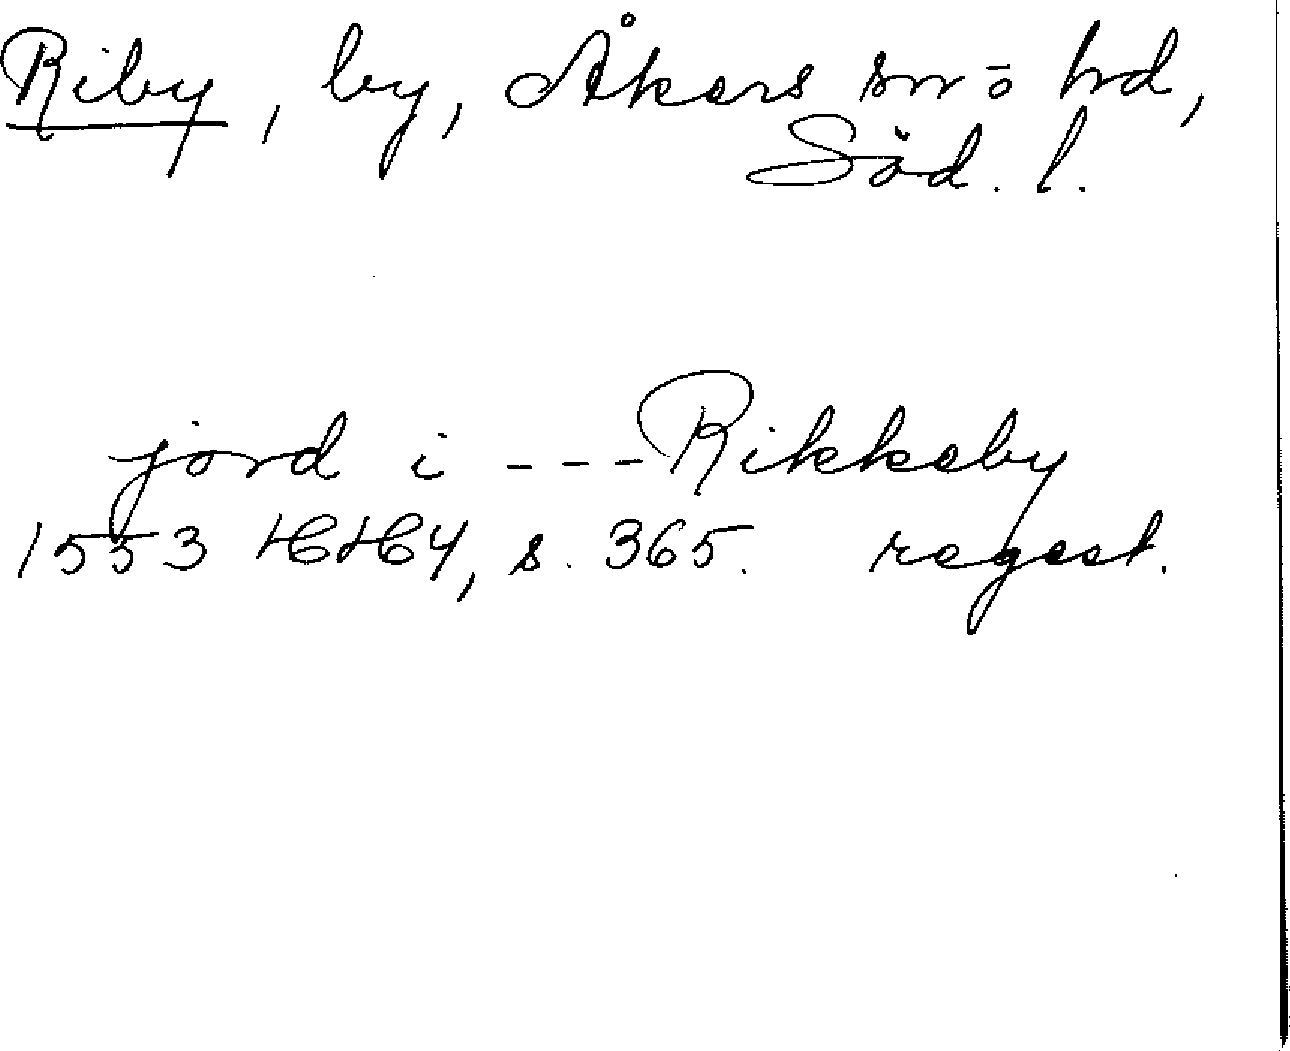 Riby, by, Åkers sn o hd,
Söd. l.
jord i --- Rikkeby
1553 HH4, s. 365. regest.